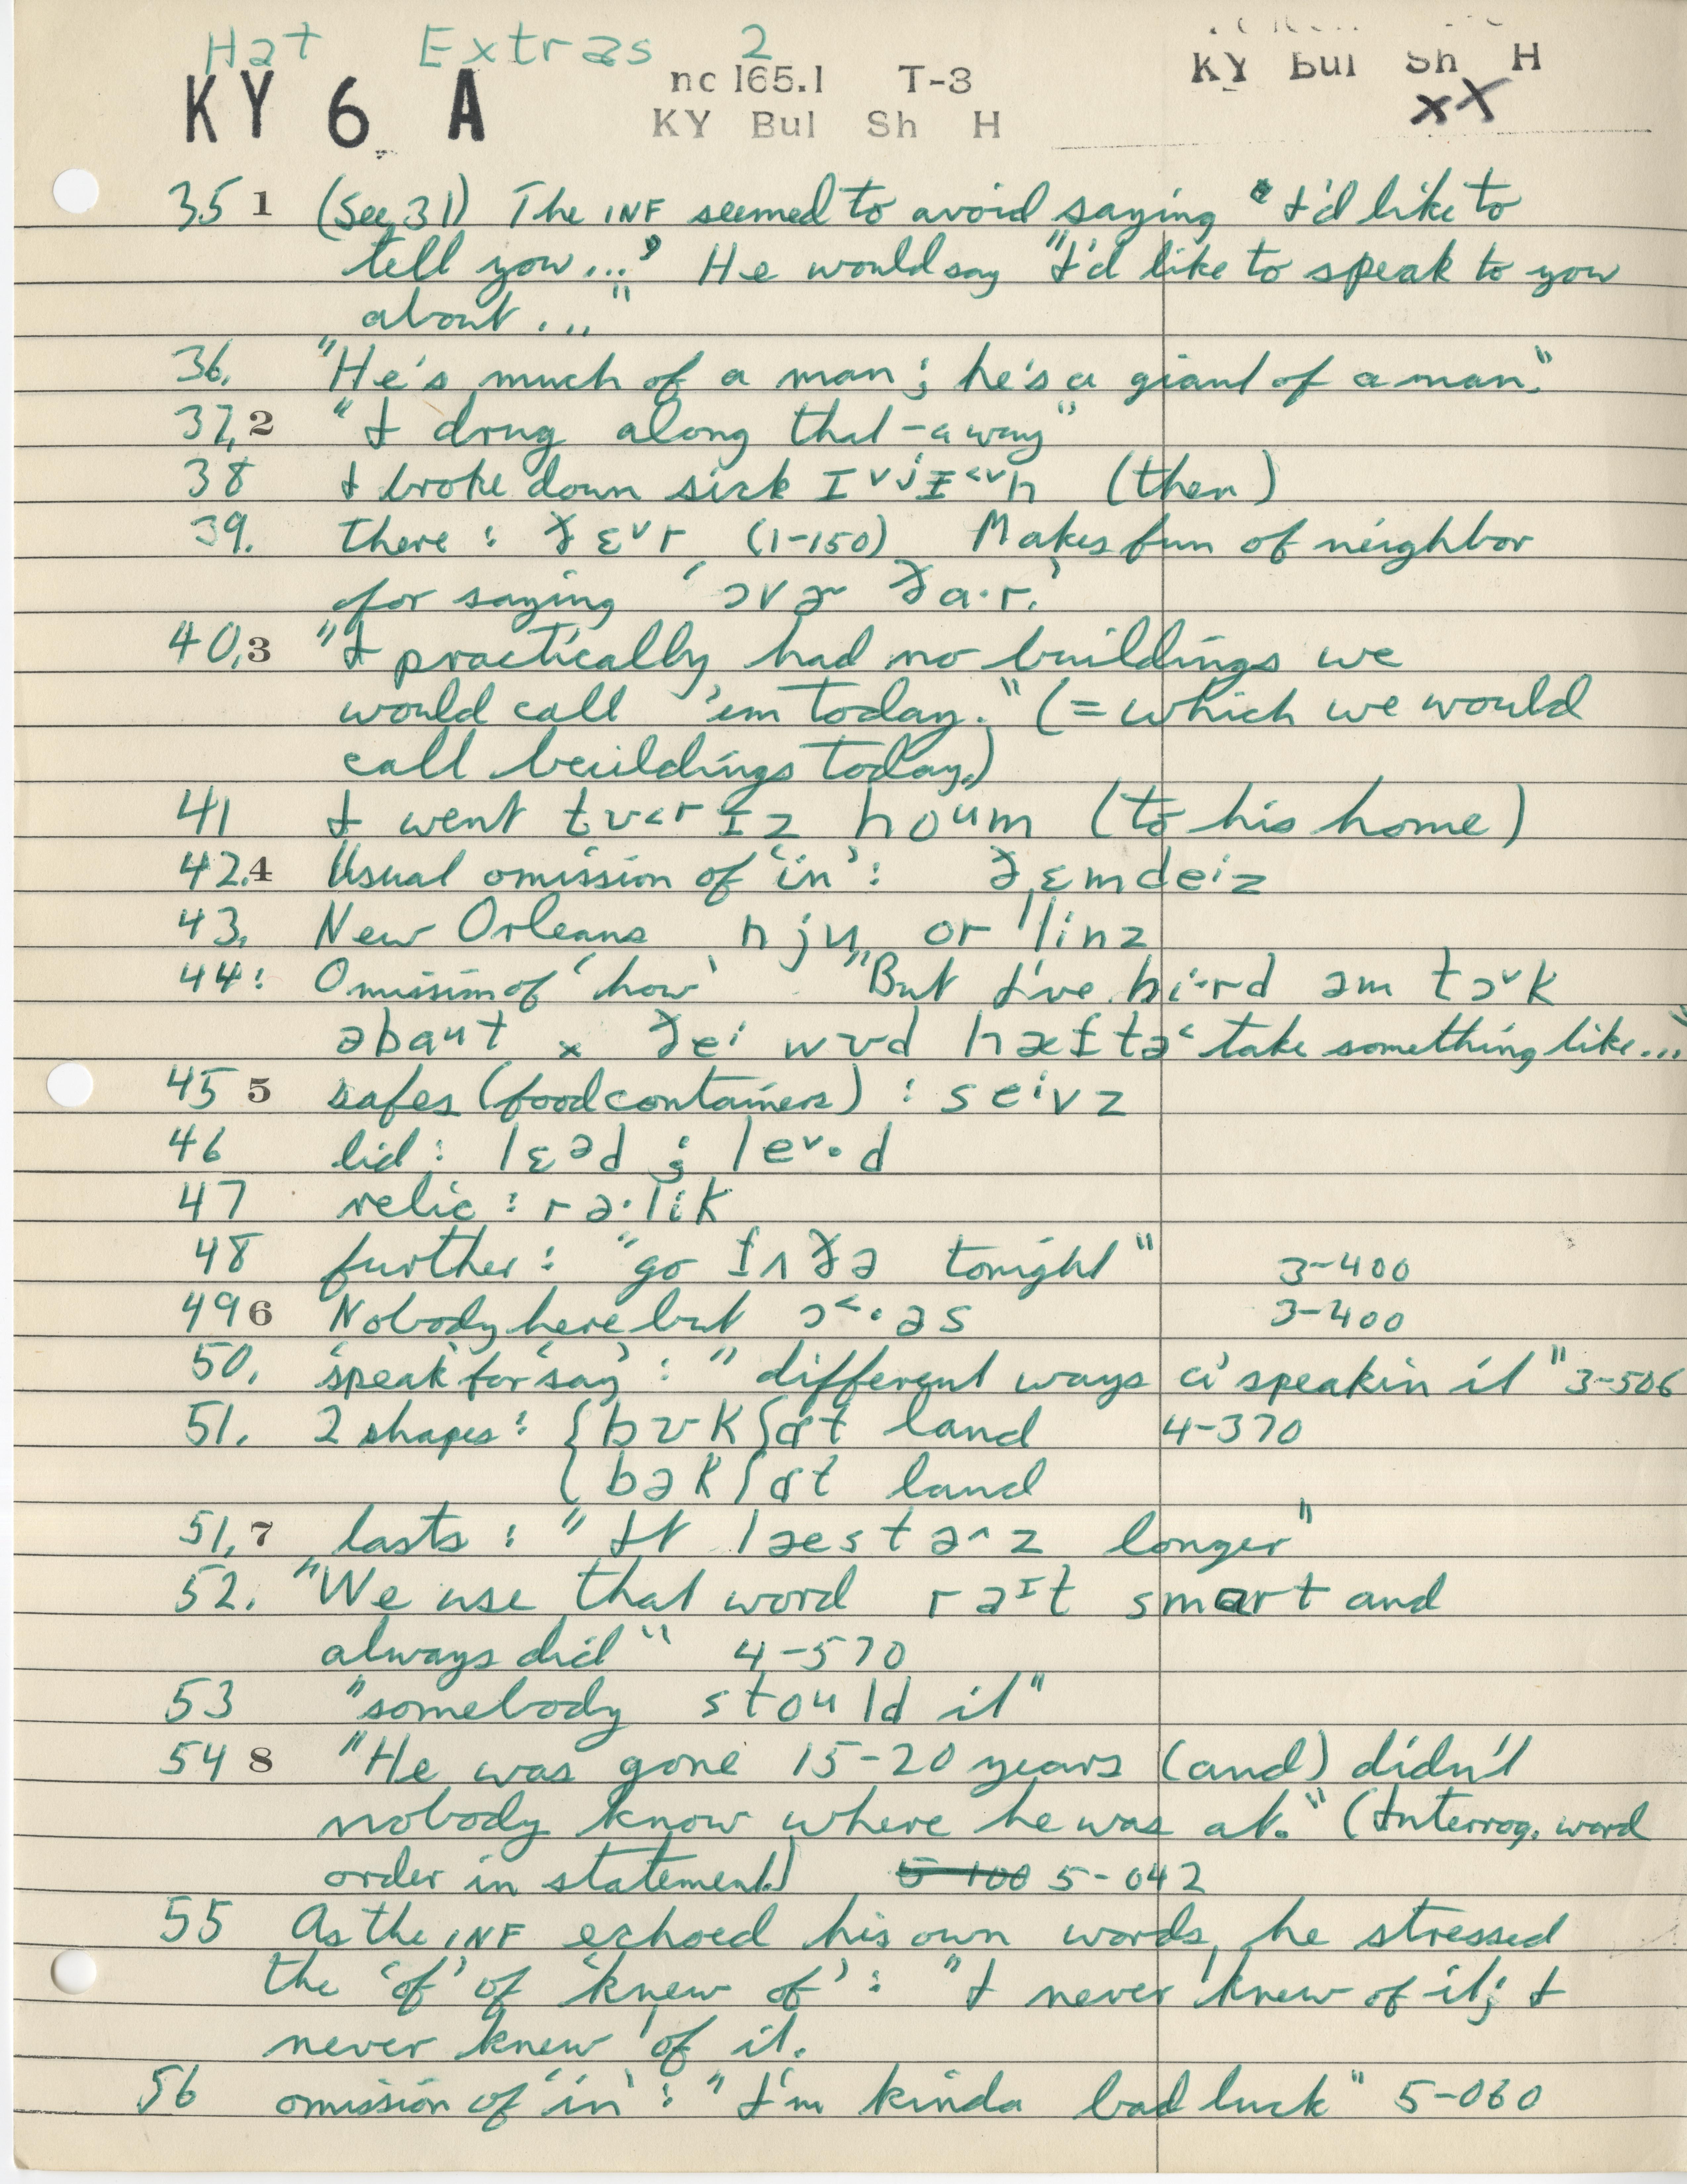 Hat Extras 2
KY 6 A nc 165.1 T-3 KY Bul Sh H
KY Bul Sh H XX
35 1 (See 31) The INF seemed to avoid saying "I'd like to
tell you..." He would say "I'd like to speak to you
about..."
36. "He's much of a man; he's a giant of a man."
37. 2 "I drug along that-a way"
38 I broke down sick ɪ˅jɪ˂˅n (then)
39. there: ðɛ˅r (1-150) Makes fun of neighbor
for saying 'ɔvɚ ða·r.'
40. 3 "I practically had no buildings we
would call 'em today." (= which we would
call buildings today.)
41 I went tʊ˂rɪz houm (to his home)
42. 4 Usual omission of 'in': ðɛmdeiz
43. New Orleans nju or'linz
44: Omission of 'how' "But I've hi·rd əm tɔ˅k
əbaut x ðei wʊd hæftə˂ take something like..."
45 5 safes (food containers): seivz
46 lid: lɛəd; le˅·d
47 relic: rə·lik
48 further: "go fʌðə tonight" 3-400
49 6 Nobody here but ɔ˂·əs 3-400
50. 'speak' for 'say': "different ways o' speakin it" 3-506
51. 2 shapes: {bʊkʃɑt land 4-370
{bəkʃɑt land
51. 7 lasts: "It læstə˄z longer"
52. "We use that word rəɪt smɑrt and
always did" 4-570
53 "somebody stould it"
54 8 "He was gone 15-20 years (and) didn't
nobody know where he was at." (Interrog. word
order in statement.) 5-100 5-042
55 As the INF echoed his own words, he stressed
the 'of' of 'knew of': "I never 'knew of it; I
never knew 'of it.
56 omission of 'in': "I'm kinda bad luck" 5-060